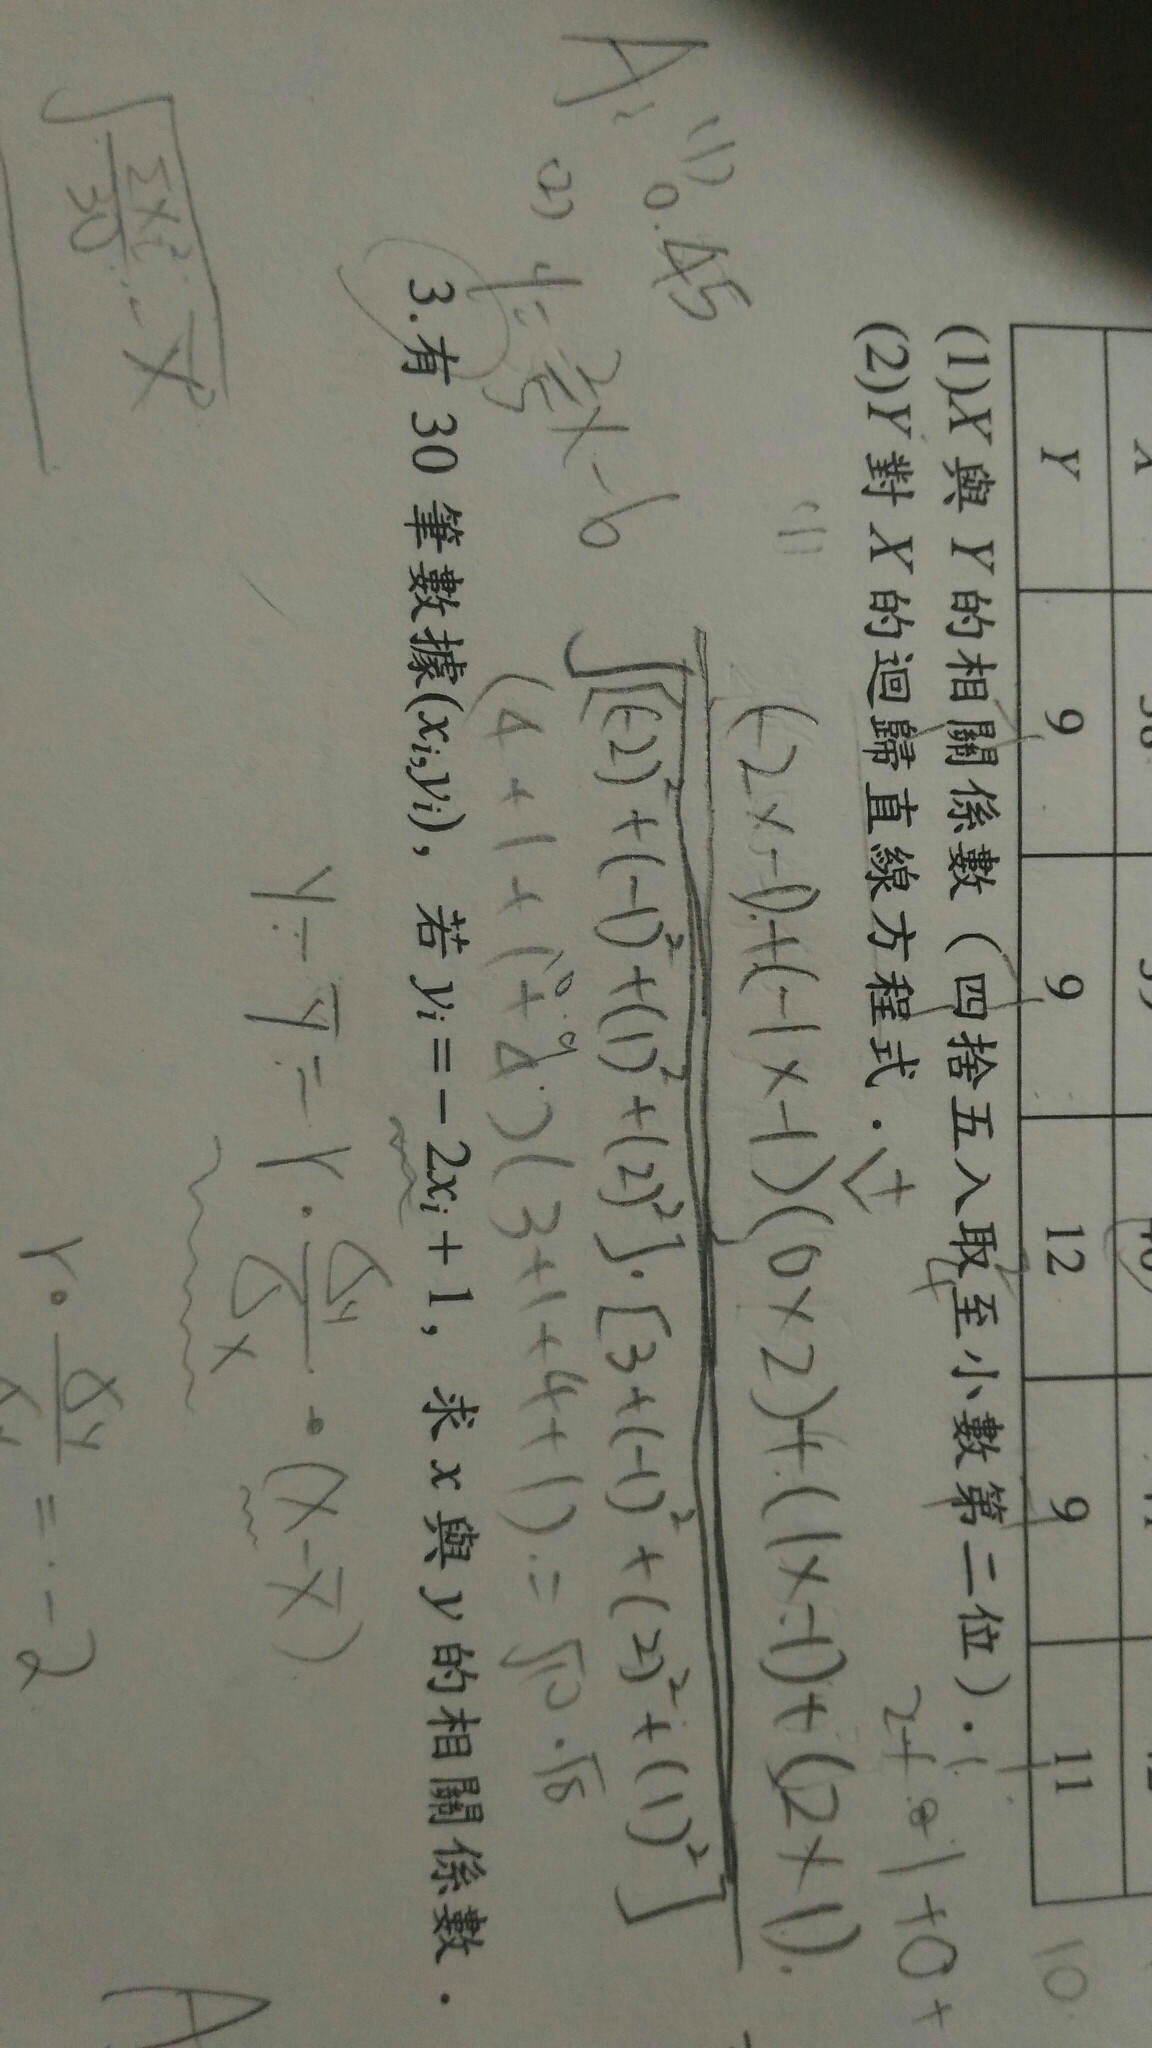 Y 9 9 12 9 11 10
(1)X 與 Y 的相關係數（四捨五入取至小數第二位）.
(2)Y 對 X 的迴歸直線方程式.
(-2×-1)+(-1×-1)(0×2)+(1×-1)+(2×1).
√[(-2)²+(-1)²+(1)²+(2)²].[3+(-1)²+(2)²+(1)²]
(4+1+1+4)(3+1+4+1)=√10.√8
A: (1) 0.45
(2) y=2/5x-6
3.有 30 筆數據(xi,yi)，若 yi=-2xi+1，求 x 與 y 的相關係數.
y-ȳ=r.σy/σx.(x-x̄)
√Σxi²/30-x̄²
r.σy/σx=-2
A